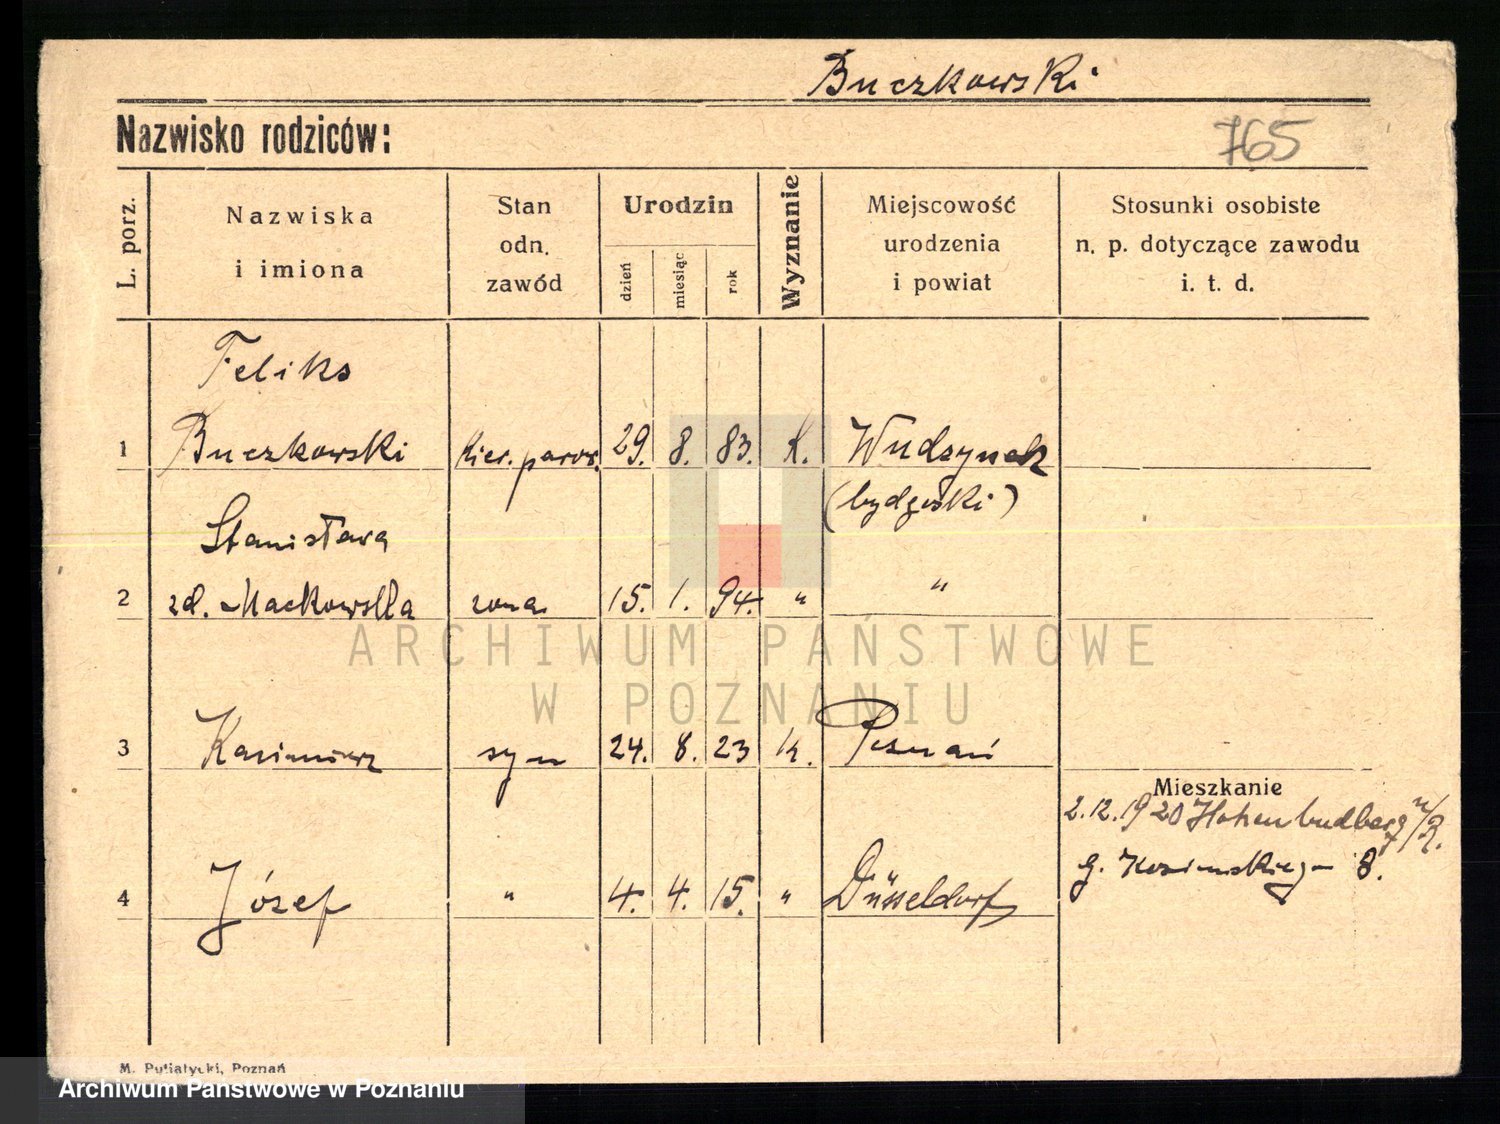 Buczkowski
Nazwisko rodziców:
765
L. porz.
Nazwiska
i imiona
Stan
odn.
zawód
Urodzin
dzień
miesiąc
rok
Wyznanie
Miejscowość
urodzenia
i powiat
Stosunki osobiste
n. p. dotyczące zawodu
i. t. d.
Feliks
1 Buczkowski kier. parow. 29. 8. 83. K. Wudzynek
(bydgoski)
Stanisława
2 zd. Mackowska zona 15. 1. 94. " "
ARCHIWUM PAŃSTWOWE
W POZNANIU
3 Kazimierz syn 24. 8. 23 K. Poznań
Mieszkanie
2.12.1920 Hohenbudberg n/R.
4 Józef " 4. 4. 15. " Düsseldorf
G. 8.
M. Putiatycki, Poznań
Archiwum Państwowe w Poznaniu